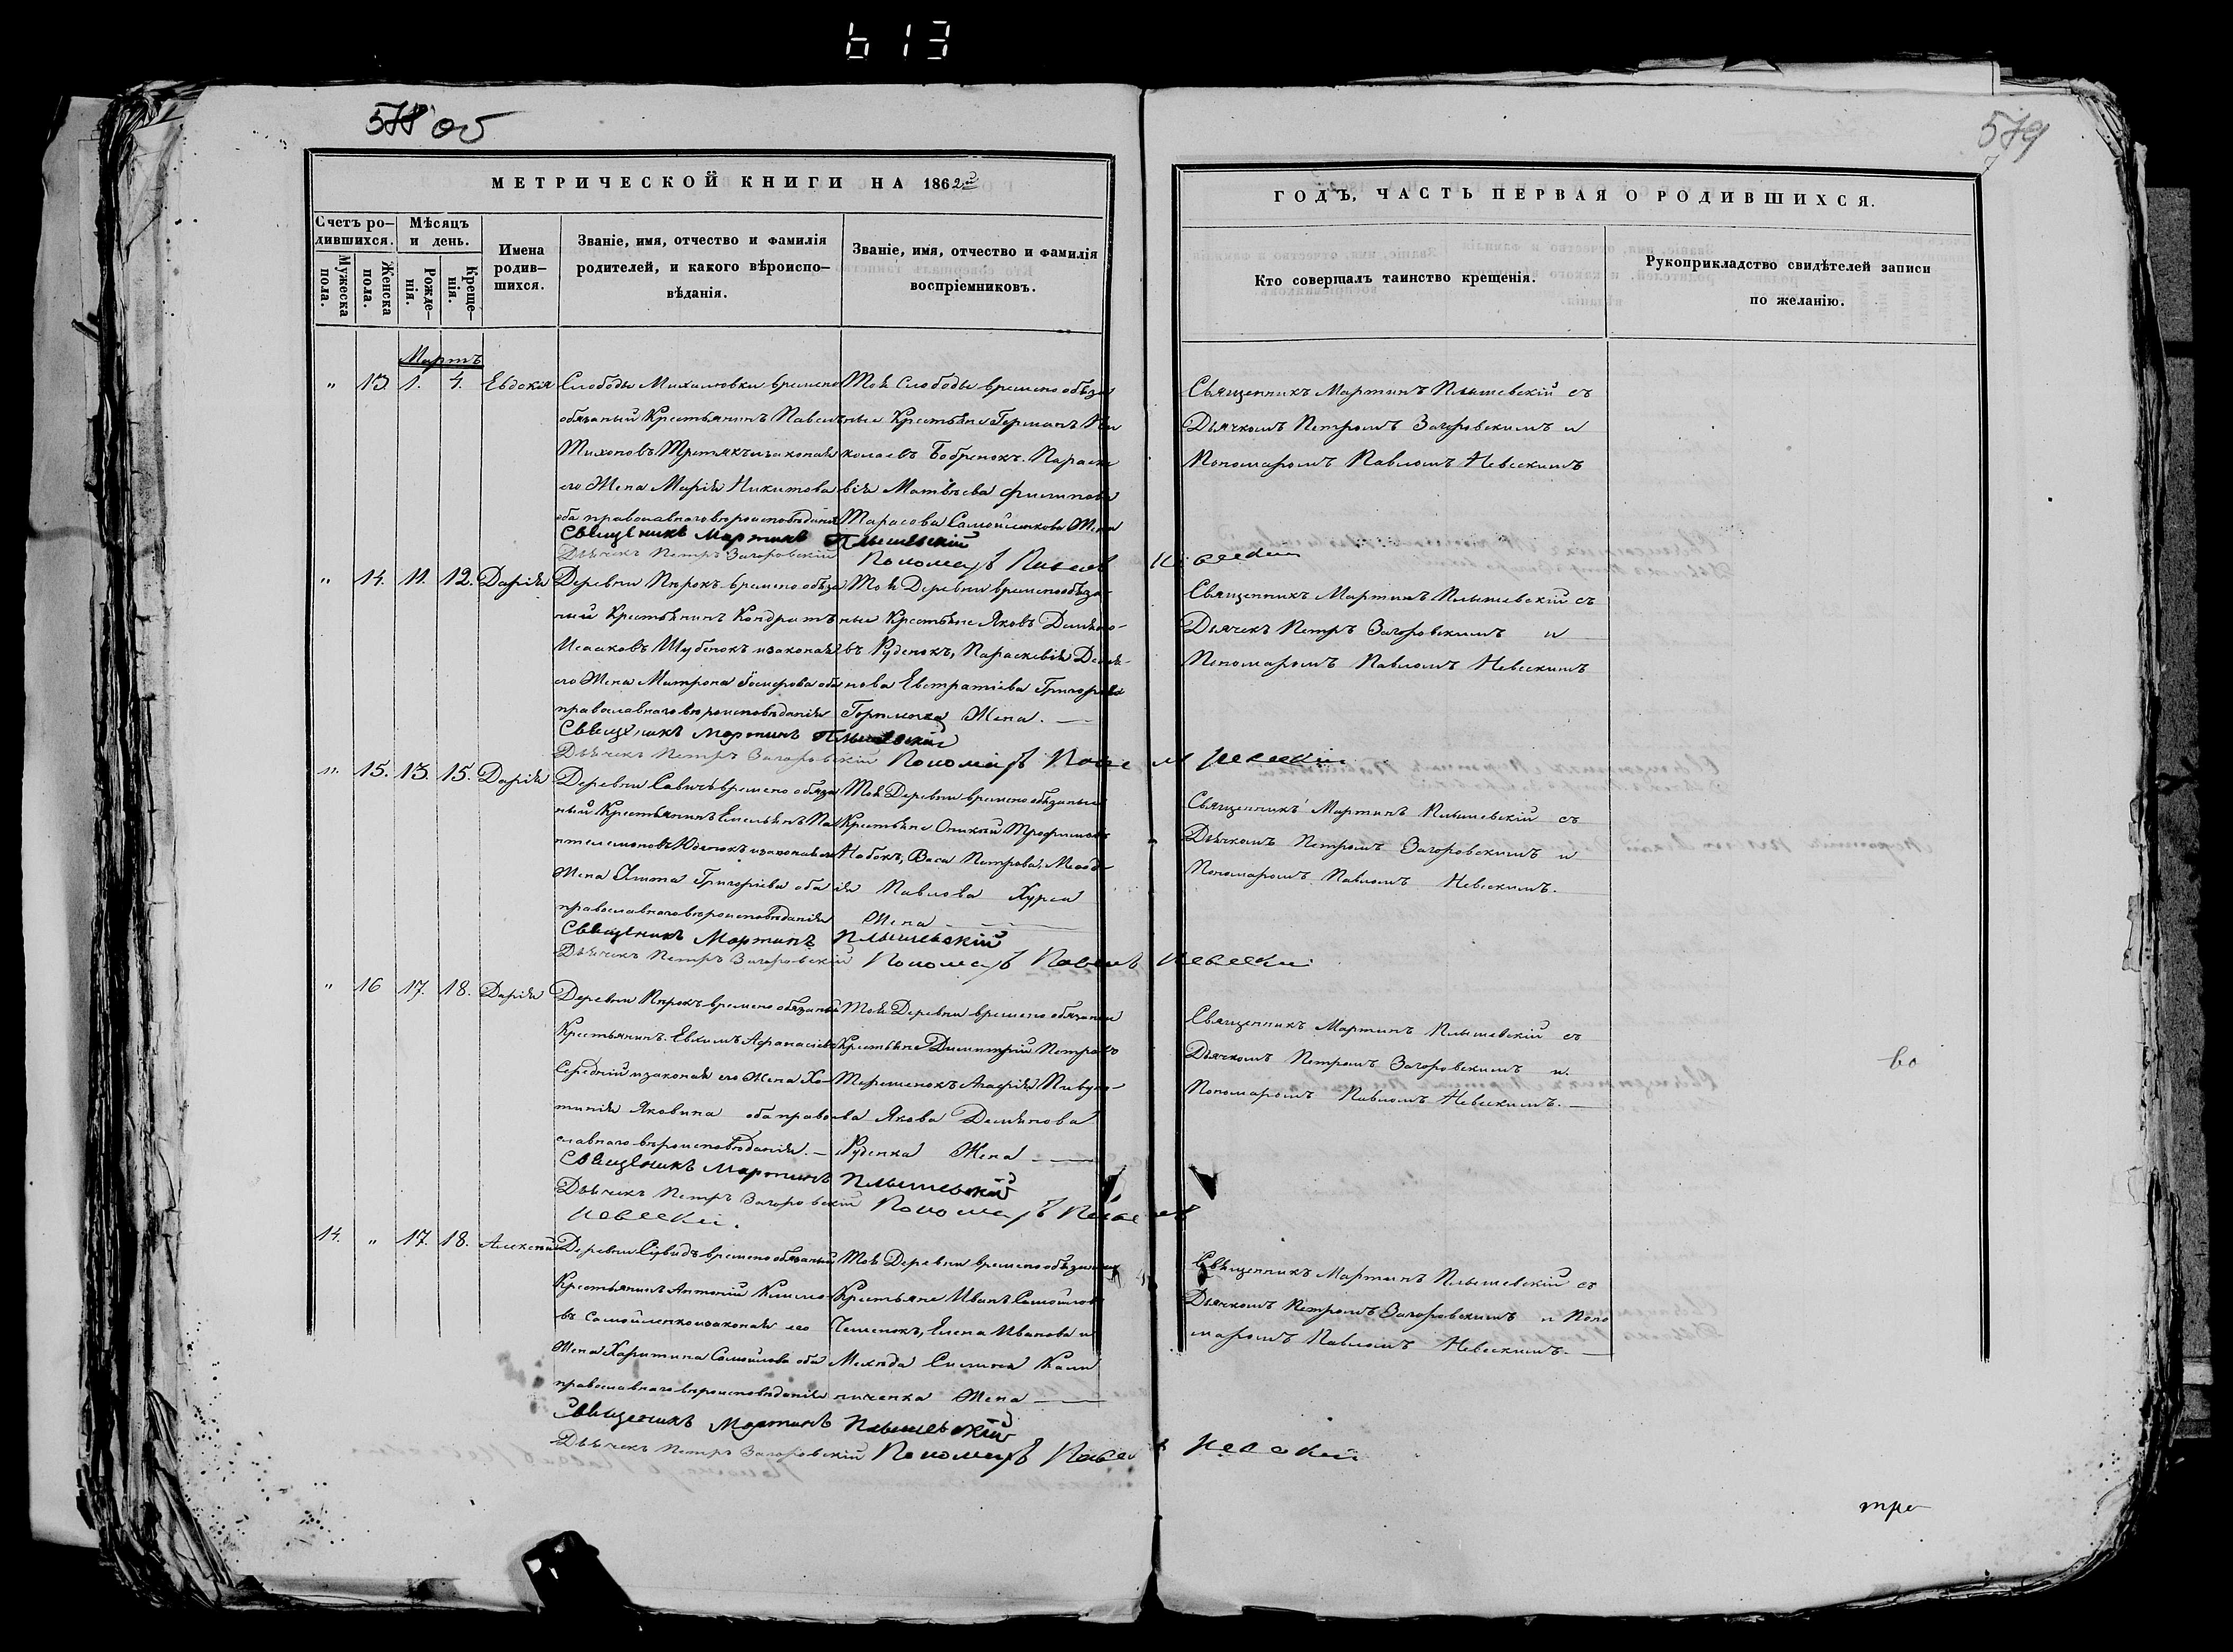 613
578 об
579
МЕТРИЧЕСКОЙ КНИГИ НА 1862й
ГОДЪ, ЧАСТЬ ПЕРВАЯ О РОДИВШИХСЯ.
Счетъ ро-
дившихся.
Мужеска
пола.
Женска
пола.
Мѣсяцъ
и день.
Рожде-
нія.
Креще-
нія.
Имена
родив-
шихся.
Званіе, имя, отчество и фамилія
родителей, и какого вѣроиспо-
вѣданія.
Званіе, имя, отчество и фамилія
воспріемниковъ.
Кто совершалъ таинство крещенія.
Рукоприкладство свидѣтелей записи
по желанію.
Мартъ
" 13. 1. 4. Евдокія
Слободы Михаловки времено
обязаный Крестьянинъ Павелъ
Тихоновъ Третякъ изаконая
его Жена Марія Никитова
оба православнаго вѣроисповѣданія
Той Слободы времено обяза
ные Крестьяне Германъ Ни
колаевъ Бобренокъ. Параске
вія Матвѣева Филипова
Тарасова Самойленкова Жена
Священникъ Мартинъ Плышевскій съ
Дьячкомъ Петромъ Загоровскимъ и
Пономаромъ Павломъ Невскимъ
Священикъ Мартинъ Плышевскій
Дьячекъ Петръ Загоровскій Пономарь Павелъ Невскій
" 14. 11. 12. Дарія
Деревни Пырокъ времено обяза
ный Крестьянинъ Кондратъ
Исааковъ Шубенокъ изаконая
его Жена Матрона Іосифова оба
православнаго вѣроисповѣданія
Той Деревни временообяза-
ные Крестьяне Яковъ Демяно-
въ Руденокъ, Параскевія Демя-
нова Евстратіева Григорьева
Жена.
Священникъ Мартинъ Плышевскій съ
Дьячекъ Петръ Загоровскимъ и
Пономаромъ Павломъ Невскимъ
Священикъ Мартинъ Плышевскій
Дьячекъ Петръ Загоровскій Пономарь Павелъ Невскій
" 15. 13. 15. Дарія
Деревни Савичъ времено обяза
ный Крестьянинъ Емельянъ Па
нтелемоновъ изаконая его
Жена Анна Григоріева оба
православнаго вѣроисповѣданія
Той Деревни времено обязаные
Крестьяне Трофимовъ
Набокъ, Васа Петрова,
Павлова Хурса
Жена
Священникъ Мартинъ Плышевскій съ
Дьячкомъ Петромъ Загоровскимъ и
Пономаромъ Павломъ Невскимъ.
Священикъ Мартинъ Плышевскій
Дьячекъ Петръ Загоровскій Пономарь Павелъ Невскій
" 16 17. 18. Дарія
Деревни Пырокъ времено обязаный
Крестьянинъ Евхимъ Афанасіевъ
Середній изаконая его Жена Хо-
тинія Яковина оба право
славнаго вѣроисповѣданія.
Той Деревни времено обязаные
Крестьяне Димитрій Петровъ
Терешенокъ Агафія
Якова Демянова
Руденка Жена
Священникъ Мартинъ Плышевскій съ
Дьячкомъ Петромъ Загоровскимъ и
Пономаромъ Павломъ Невскимъ.
Священикъ Мартинъ Плышевскій
Дьячекъ Петръ Загоровскій Пономарь Павелъ
Невскій.
14. " 17. 18. Алексій
Деревни времено обязаный
Крестьянинъ Антоній Климо
въ Самойленко изаконая его
Жена Харитина Самойлова оба
православнаго вѣроисповѣданія
Той Деревни времено обязаные
Крестьяне Иванъ Самойловъ
Чешенокъ, Елена Иванова и
Силина Кали
ниченка Жена
Священникъ Мартинъ Плышевскій съ
Дьячкомъ Петромъ Загоровскимъ и Поно
маромъ Павломъ Невскимъ.
Священикъ Мартинъ Плышевскій
Дьячекъ Петръ Загоровскій Пономарь Павелъ Невскій
во
тре